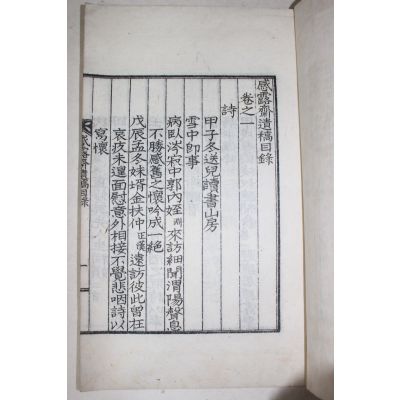 感露齋遺稿目錄
卷之一
詩
甲子冬送兒讀書山房
雪中卽事
病臥涔寂中郭內姪來訪細聞渭陽聲息
不勝感舊之懷吟成一絶
戊辰孟冬妹壻金扶仲正漢遠訪彼此曾在
哀疚未遑面慰意外相接不覺悲咽詩以
寫懷
感露齋遺稿目錄
一